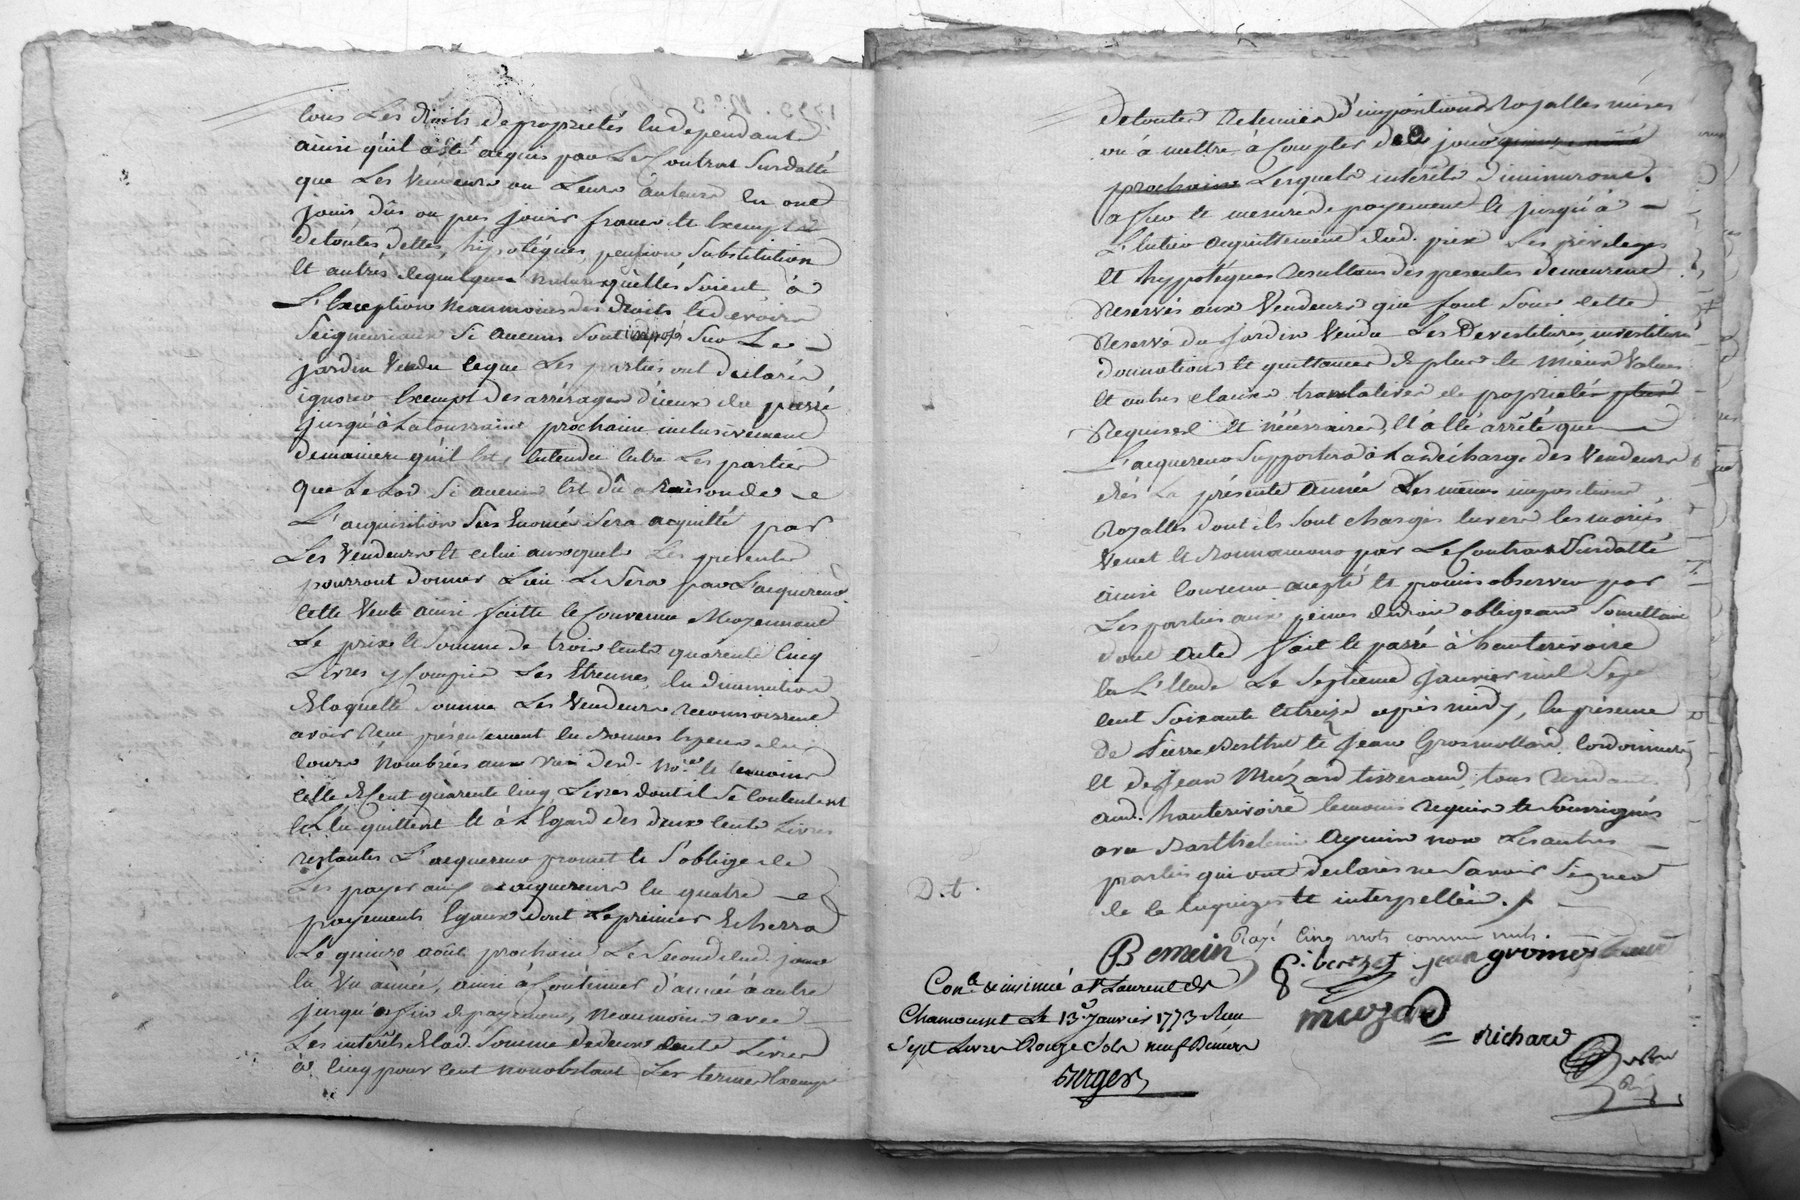 tous Les droits de proprietés En dependant
ainsi qu'il a êté acquis par Le Contrat Susdatté
que Les Vendeurs ou Leurs auteurs En ont
joüis dûs ou peu joüir franc et Exempt
detoutes dettes, hypotéques, pension, Substitution
Et autres dequelques natures qu'elles Soient à
L'Exception Neanmoins des droits Et devoirs
Seigneuriaux Si aucuns Sont imposé Sur Le
jardin Vendu ceque Les parties ont déclarés
ignorer Exempt des arrérages d'iceux du passé
jusqu'à Latoussaint prochaine inclusivement
demaniere qu'il Est Entendu Entre Les parties
que Le Lod Si aucun Est dû à Raison de
L'acquisition Sus Enoncée Sera acquitté par
Les Vendeurs Et celui auxquels Les presentes
pourront donner Lieu Le Sera par L'acquereur
Cette Vente ainsi faitte Et Convenue Moyennant
Le prix et Somme de trois Cents quarente Cinq
Livres y Compris Les Etrennes, En diminution
de laquelle Somme Les Vendeurs reconnoissent
avoir Reçu présentement En bonnes Especes de
cours Nombrées aux vües dud. No.re et temoins
Celle de Cent quarente Cinq Livres dont il Se Contentent
Et L'en quittent Et à L'Egard des deux Cents Livres
restantes L'acquereur promet et S'oblige de
Les payer aux acquereurs En quatre
payements Egaux dont Le premier Echerra
Le quinze août prochain, Le Second dud. jour
En Un année, ainsi à Continüer d'année à autre
jusqu'à fin de payement, Neanmoins avec
Les interêts de lad. Somme de deux Cents Livres
à Cinq pour Cent nonobstant Les termes Exempts
detoutes Retenües d'impositions Royalles mises
où à mettre à Compter de Ce jour
prochaine Lesquels interêts diminueront
a fur et mesure de payement Et jusqu'à
L'Entier acquittement dud. prix Les privileges
Et hypotéques Resultans des presentes demeurent
Reservés aux Vendeurs que font Sous cette
Reserve du Jardin Vendu Les Devestitures, investitures
donnation Et quittance de plus Et mieux Values
Et autres clauses translatives de proprietés plus
Requises Et nécéssaires, Et à Eté arrêté que
L'acquereur Supportera à La décharge des Vendeurs
dés La présente année Les mêmes impositions
Royalles dont ils Sont chargés Envers Les mariés
Venet Et par Le Contrat Susdatté
ainsi Convenu accepté Et promis observer par
Les parties aux peines de droit obligeant Soumettant
dont acte fait Et passé à hauterivoire
En L'Etude Le Septieme Janvier mil Sept
Cent Soixante Et treize après midy, En présence
De Pierre Berthet Et Jean Grosmollard, Cordonniers
Et de Jean Muzard tisserand, tous residants
aud. hauterivoire temoins requis Et Soussignés
avec Barthelemi non Les autres
parties qui ont declarés ne Savoir Signer
de Ce Enquizes Et interpellés.
D. t.
Rayé Cinq mots comme nuls.
Bemein P. berthet jean gromollard
Con.lé & insinué à S.t Laurent de
Chamousset Le 13.e Janvier 1773 Reçu
Sept Livres Douze Sols neuf Deniers
muzard
Richard